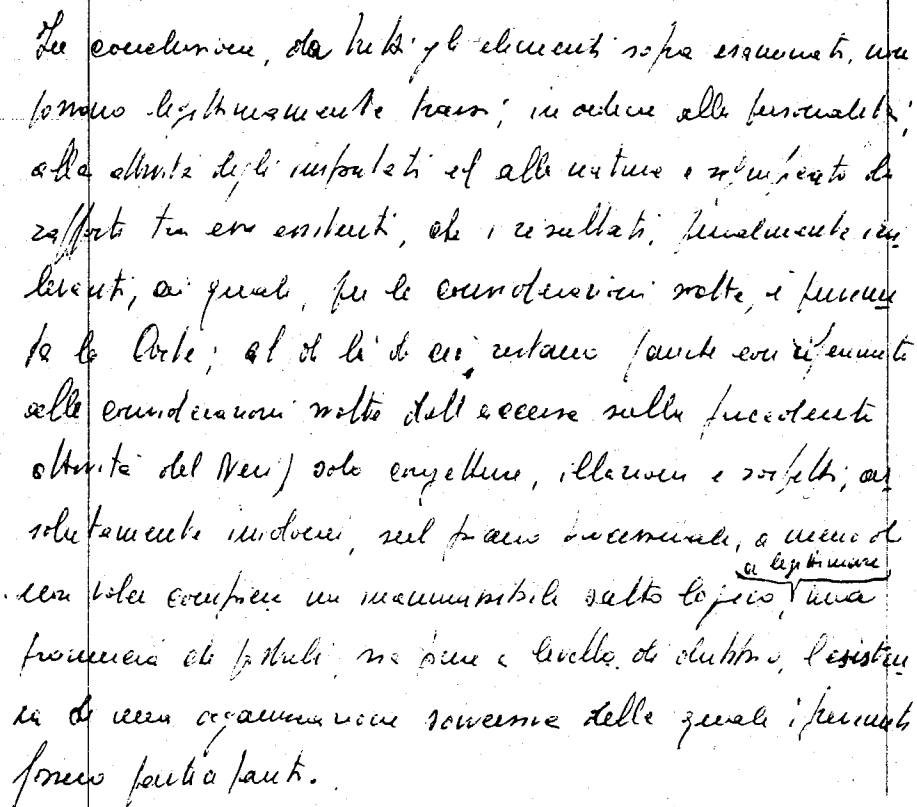 In conclusione, da tutti gli elementi sopra esaminati, non
possono legittimamente trarsi, in ordine alla personalità,
alla attività degli imputati ed alla natura e significato dei
rapporti tra essi esistenti, che i risultati, penalmente irri
levanti, ai quali, per le considerazioni svolte, è pervenu
ta la Corte; al di là di essi restano (anche con riferimento
alle considerazioni svolte dall'accusa sulla precedente
attività del Neri) solo congetture, illazioni e sospetti, as
solutamente inidonei, sul piano processuale, a meno di
a legittimare
non voler compiere un inammissibile salto logico, una
pronuncia che postuli, sia pure a livello di dubbio, l'esisten
za di una organizzazione sovversiva della quale i prevenuti
fossero partecipanti.